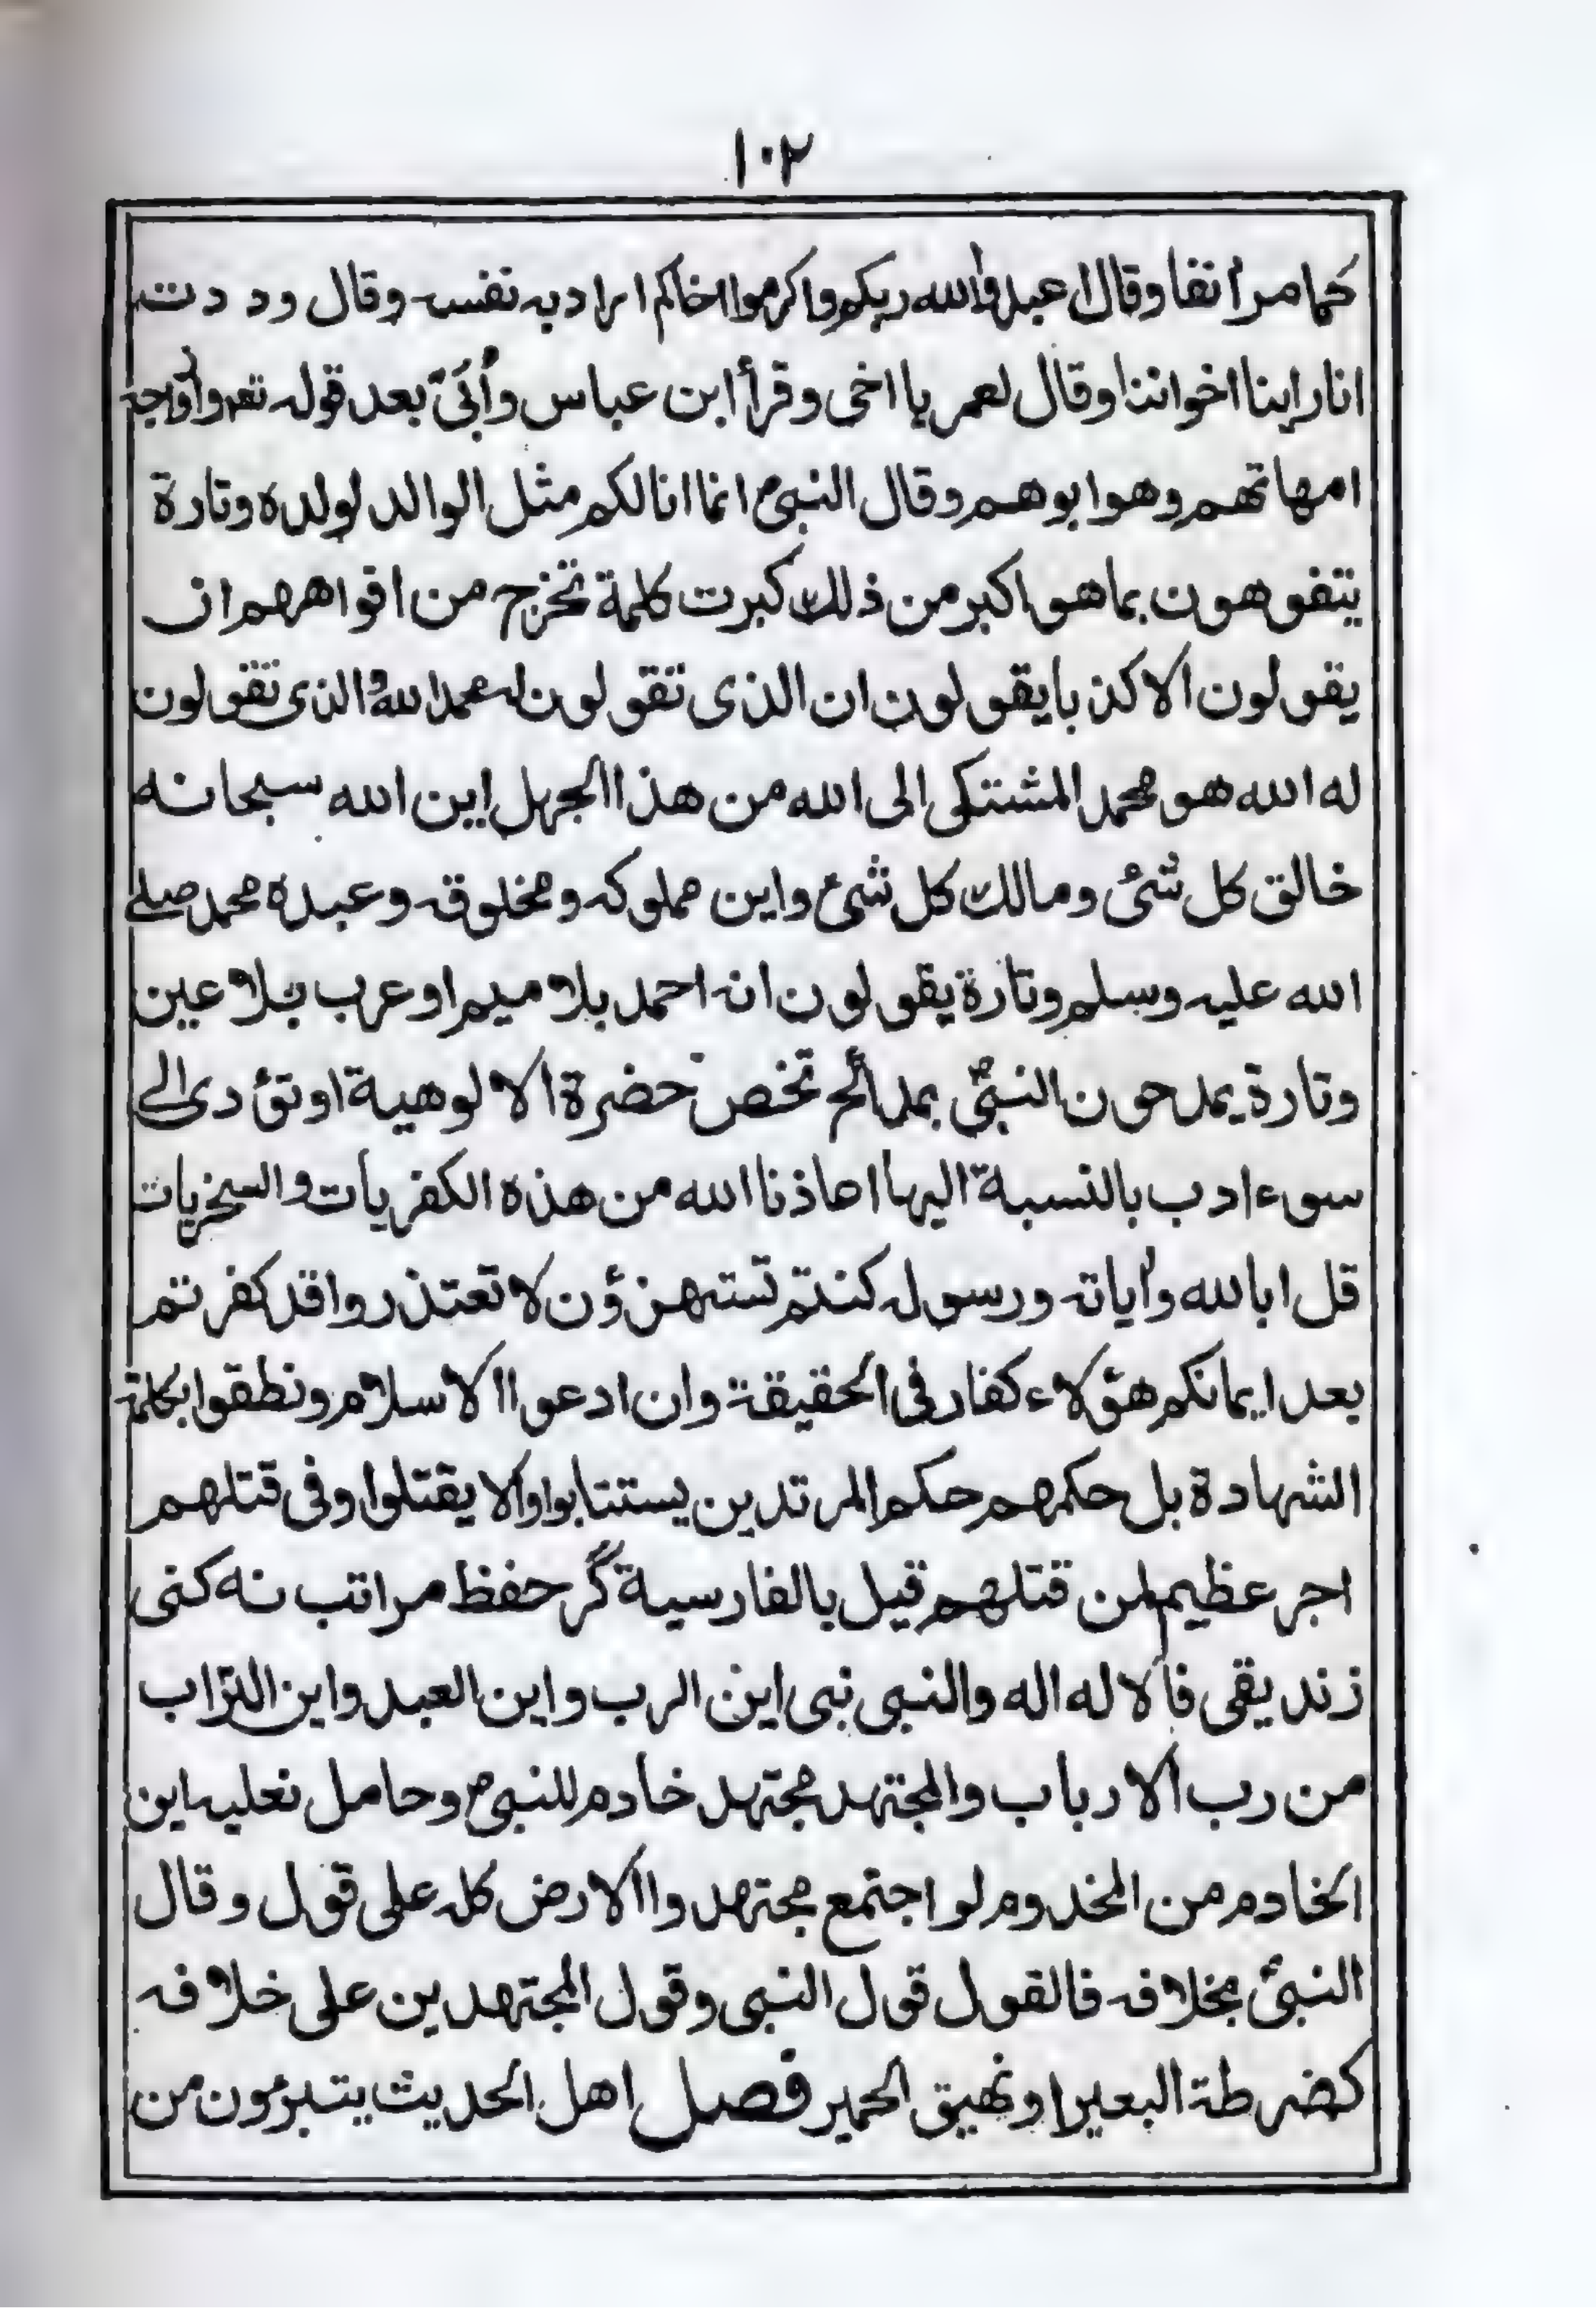 ١٠٢
كما مر انفا وقال اعبدوا الله ربكم واكرموا اخاكم اراد به نفسه وقال وددت
انا راينا اخواننا وقال لعمر يا اخى وقرأ ابن عباس وأُبَىّ بعد قوله تعم وأزواجه
امهاتهم وهو ابوهم وقال النبىؐ انما انا لكم مثل الوالد لولده وتارة
يتفوهون بما هو اكبر من ذلك كبرت كلمة تخرج من افواههم ان
يقولون الا كذبا يقولون ان الذى تقولون له محمد الله والذى تقولون
له الله هو محمد المشتكى الى الله من هذا الجهل اين الله سبحانه
خالق كل شئ ومالك كل شئ واين مملوكه ومخلوقه وعبده محمد صلے
الله عليه وسلم وتارة يقولون انه احمد بلا ميم او عرب بلا عين
وتارة يمدحون النبىؐ بمدائح تخص حضرة الالوهية او تؤدى الے
سوء ادب بالنسبة اليها اعاذنا الله من هذه الكفريات والسخريات
قل ابالله وأياته ورسوله كنتم تستهزؤن لا تعتذروا قد كفرتم
بعد ايمانكم هؤلاء كفار فى الحقيقة وان ادعوا الاسلام ونطقوا بكلمة
الشهادة بل حكمهم حكم المرتدين يستتابوا والا يقتلوا وفى قتلهم
اجر عظيم لمن قتلهم قيل بالفارسية گر حفظ مراتب نه كنى
زنديقى فالاله اله والنبى نبى اين الرب واين العبد واين التراب
من رب الارباب والمجتهد مجتهد خادم للنبىؐ وحامل نعليه اين
الخادم من المخدوم لو اجتمع مجتهدوا الارض كله على قول وقال
النبىؐ بخلافه فالقول قول النبى وقول المجتهدين على خلافه
كضرطة البعير او نهيق الحمير فصل اهل الحديث يتبرءون من